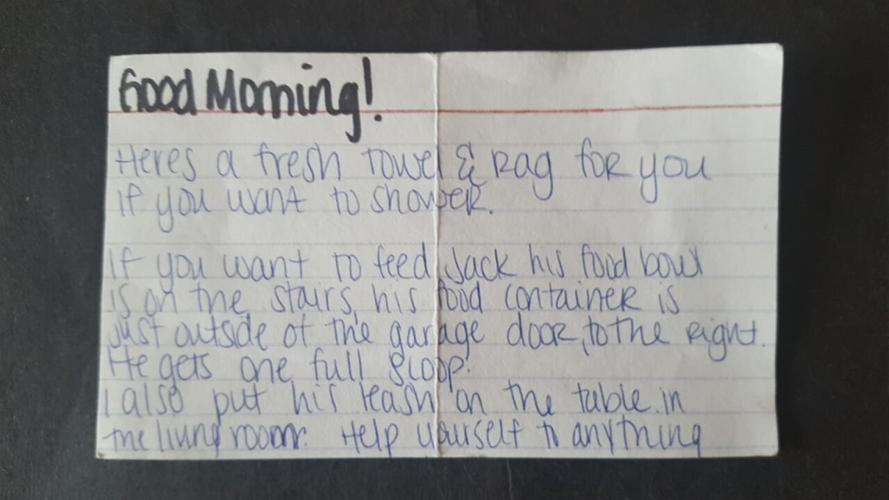 Good Morning!
Heres a fresh towel & Rag for you
if you want to shower.
If you want to feed Jack his food bowl
is on the stairs, his food container is
just outside of the garage door, to the right.
He gets one full scoop.
I also put his leash on the table in
the living room. Help yourself to anything